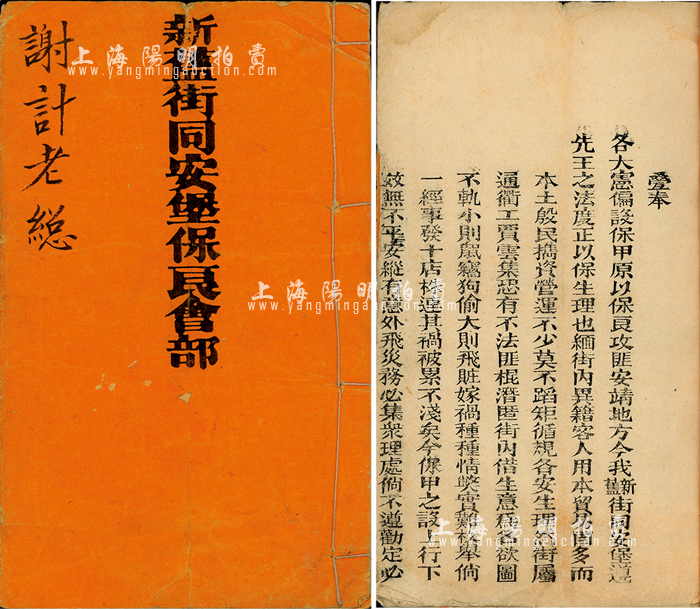 謝計老総
新舊街同安堡保良會部
爰奉
各大憲偏設保甲原以保良攻匪安靖地方今我新舊街同安堡遵
先王之法度正以保生理也緬街內異籍客人用本貿易間多而
本土殷民擕資營運不少莫不蹈矩循規各安生理
街屬
通衢工賈雲集恐有不法匪棍潛匿街內借生意為
欲圖
不軌小則鼠竊狗偷大則飛賍嫁禍種種情獘實難
舉倘
一經事發十店株連其禍被累不淺矣今保甲之設上行下
效無不平安縱有意外飛災務必集衆理處倘不遵勸定必
上海陽明拍賣
www.yangmingauction.com
上海陽明拍賣
www.yangmingauction.com
上海陽明拍賣
www.yangmingauction.com